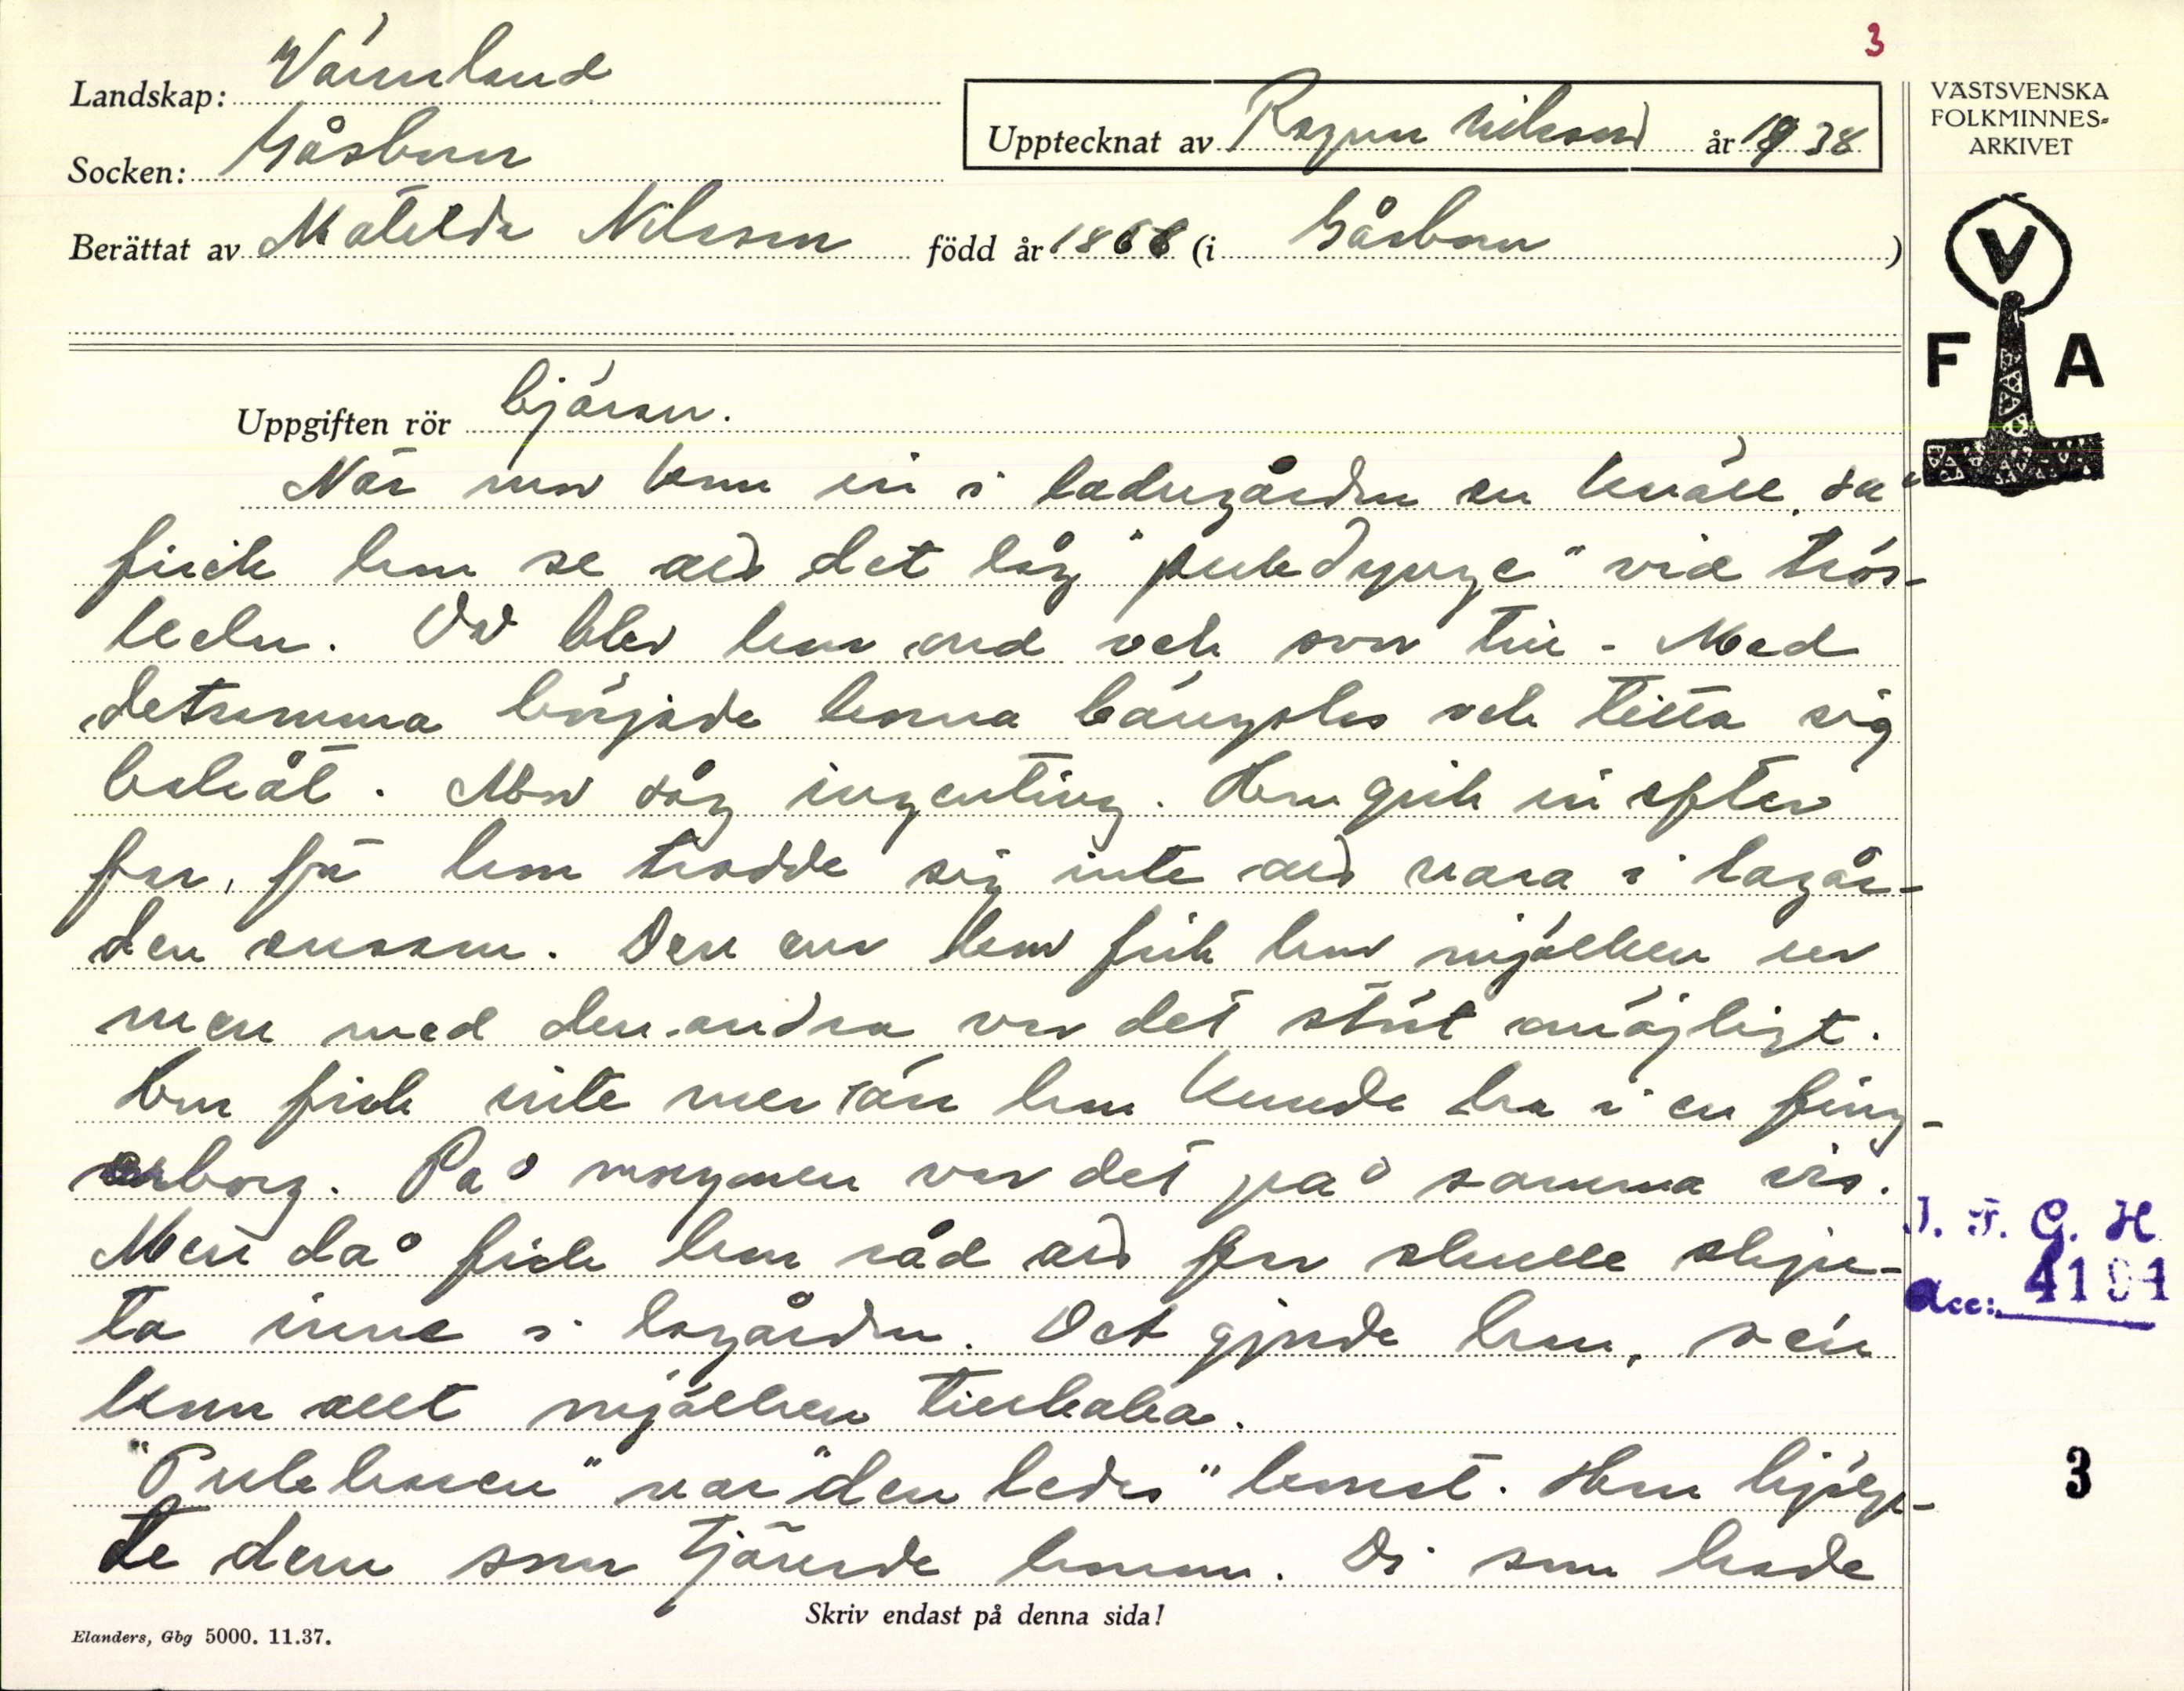 3
Landskap: Värmland
Socken: Gåsborn
Upptecknat av Ragnar Nilsson år 1938
VÄSTSVENSKA
FOLKMINNES-
ARKIVET
Berättat av Matilda Nilsson född år 1866 (i Gåsborn)
V
F A
Uppgiften rör bjäran.
När mor kom in i ladugården en kväll, så
fick hon se att det låg "pukdynga" vid trös-
keln. Då blev hon ond och svor till. Med
detsamma började korna bängslas och titta sig
bakåt. Mor såg ingenting. Hon gick in efter
far, för hon trodde sig inte att vara i lagår-
den ensam. Den ena kon fick hon mjölken ur
men med den andra var det stört omöjligt.
Hon fick inte mer än hon kunde ha i en fing-
erborg. På morgonen var det på samma vis.
Men då fick hon råd att far skulle skju-
ta inne i lagården. Det gjorde han, så
kom allt mjölken tillbaka.
"Pukharen" var "den ledes" konst. Han hjälp-
te dem som tjänade honom. Di som hade
J. F. G. H
acc: 4191
3
Skriv endast på denna sida!
Elanders, Gbg 5000. 11.37.